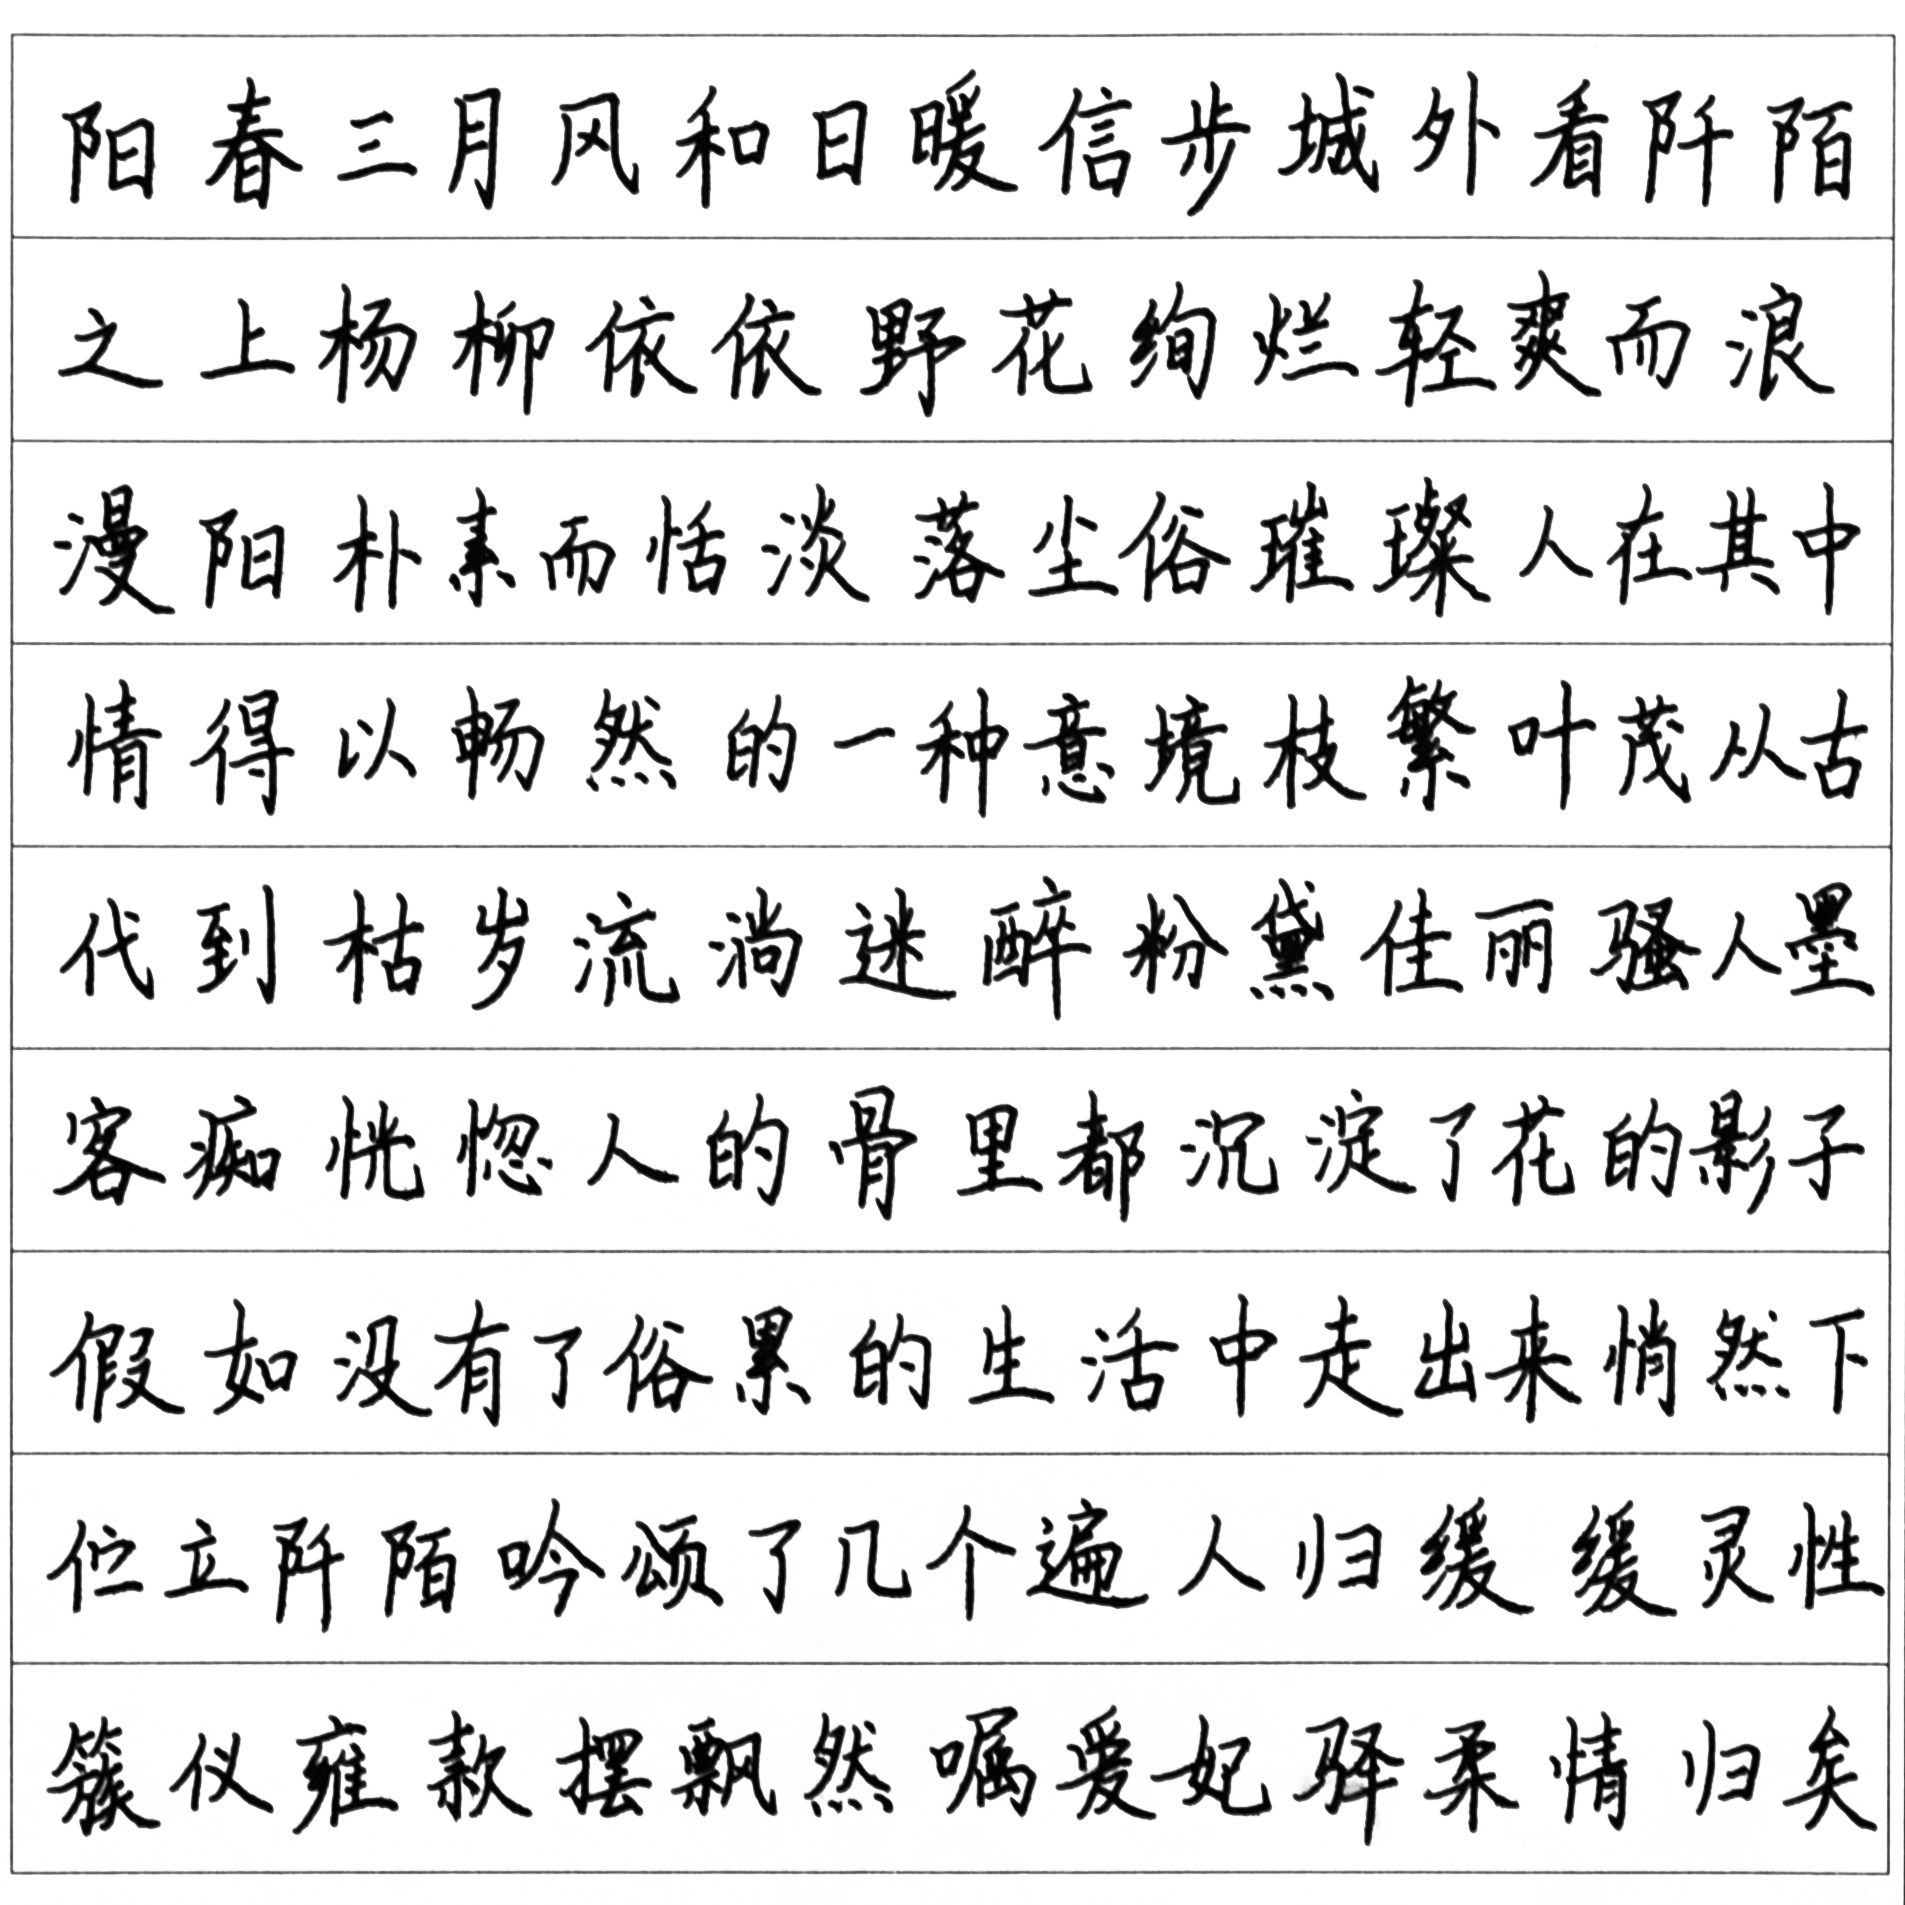 阳春三月风和日暖信步城外看阡陌
之上杨柳依依野花绚烂轻爽而浪
漫阳朴素而恬淡落尘俗璀璨人在其中
情得以畅然的一种意境枝繁叶茂从古
代到枯岁流淌迷醉粉黛佳丽骚人墨
客痴恍惚人的骨里都沉淀了花的影子
假如没有了俗累的生活中走出来悄然下
伫立阡陌吟颂了几个遍人归缓缓灵性
簇仪雍款摆飘然嘱爱妃驿柔情归矣